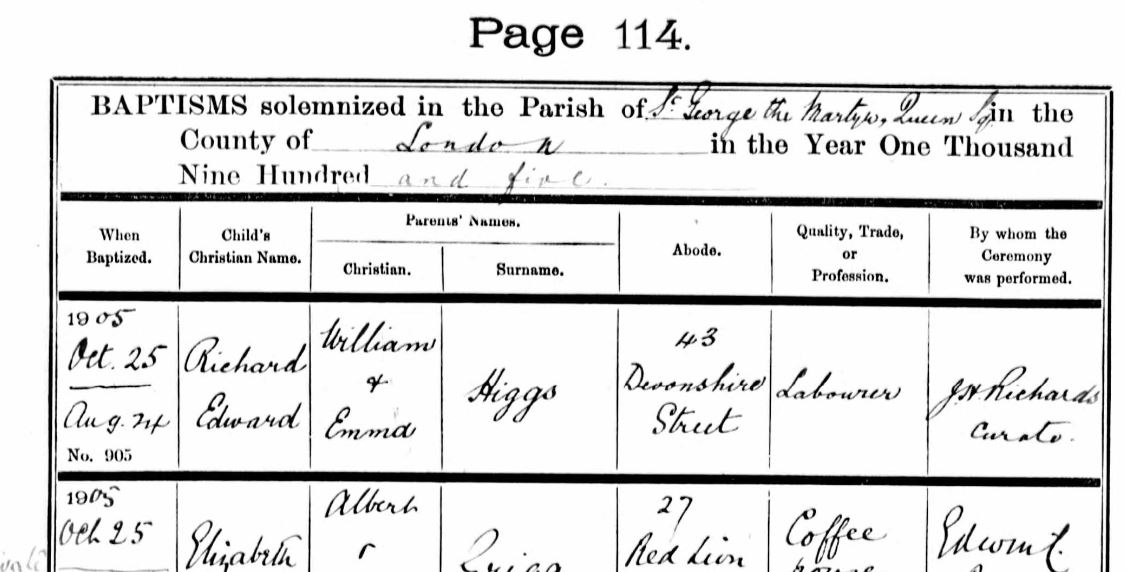 Page 114.
BAPTISMS solemnized in the Parish of St George the Martyr, Queen Sq. in the
County of London in the Year One Thousand
Nine Hundred and five.
When Baptized.
Child's Christian Name.
Parents' Names.
Christian.
Surname.
Abode.
Quality, Trade, or Profession.
By whom the Ceremony was performed.
1905
Oct. 25
Aug. 24
No. 905
Richard
Edward
William
&
Emma
Higgs
43
Devonshire
Street
Labourer
J H Richards
Curate.
1905
Oct 25
Elizabeth
Albert
27
Red Lion
Coffee
house